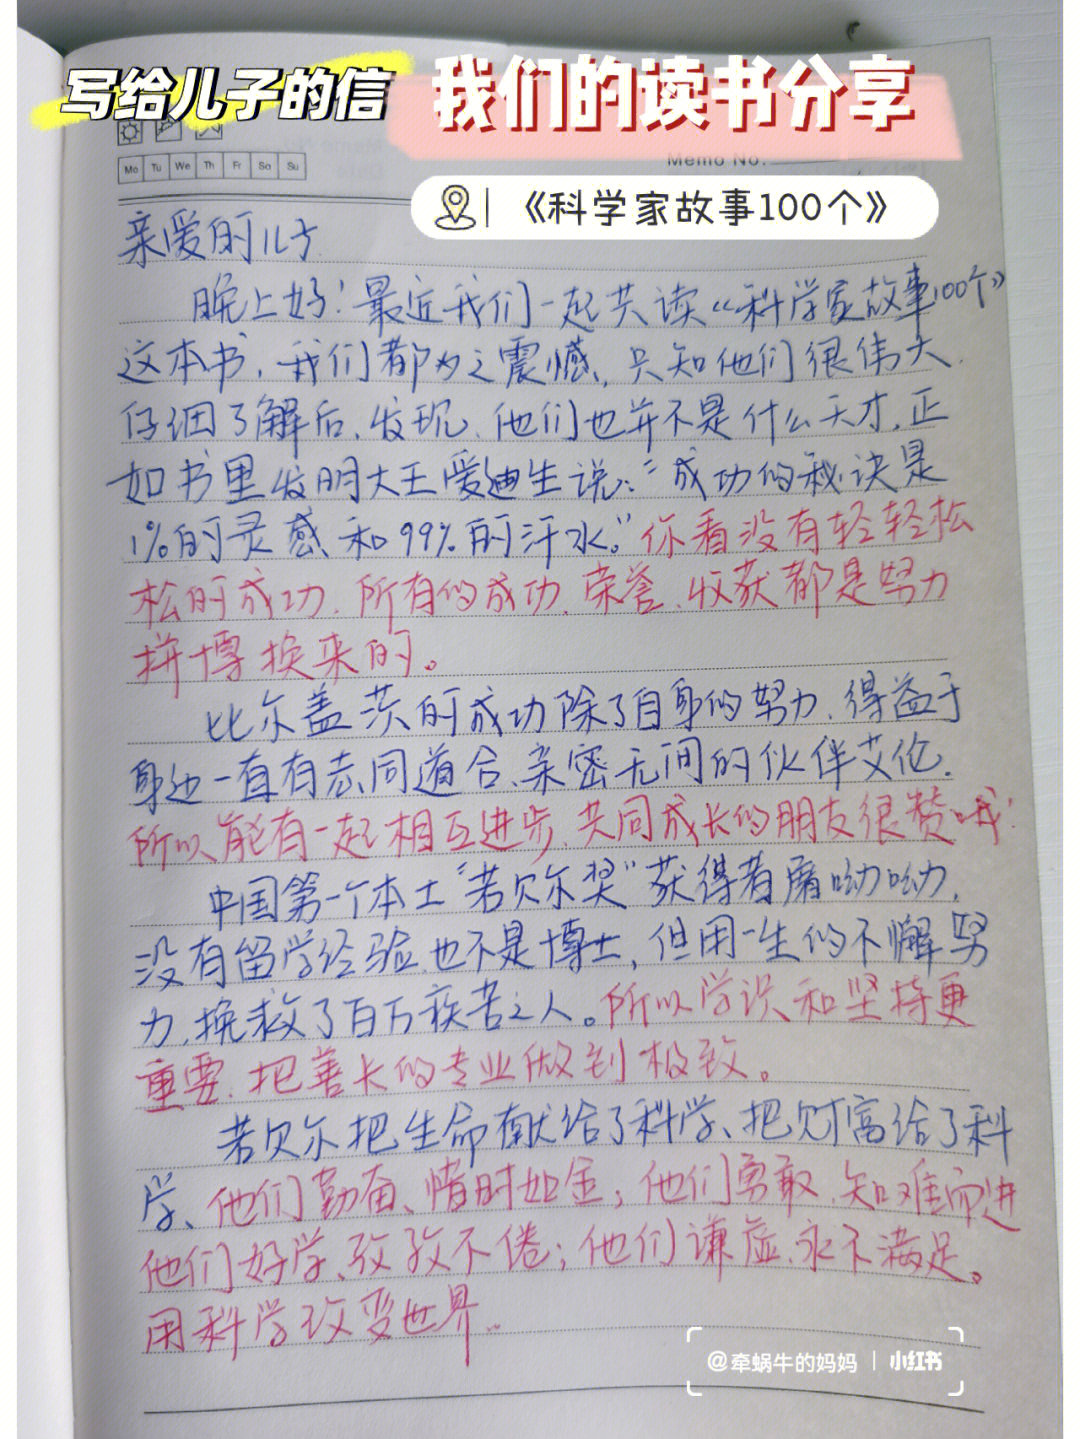 写给儿子的信
我们的读书分享
Memo No.
Mo Tu We Th Fr Sa Su
《科学家故事100个》
亲爱的儿子
晚上好！最近我们一起共读《科学家故事100个》
这本书，我们都为之震憾，只知他们很伟大，
仔细了解后、发现、他们也并不是什么天才，正
如书里发明大王爱迪生说：“成功的秘诀是
1%的灵感和99%的汗水。”你看没有轻轻松
松的成功，所有的成功、荣誉、收获都是努力
拼博换来的。
比尔盖茨的成功除了自身的努力，得益于
身边一直有志同道合、亲密无间的伙伴艾伦，
所以能有一起相互进步、共同成长的朋友很赞哦！
中国第一个本土“若贝尔奖”获得者屠呦呦，
没有留学经验也不是博士，但用一生的不懈努
力，挽救了百万疾苦之人。所以学识和坚持更
重要，把善长的专业做到极致。
若贝尔把生命献给了科学、把财富给了科
学、他们勤奋、惜时如金；他们勇敢、知难而进
他们好学、孜孜不倦；他们谦虚、永不满足。
用科学改变世界。
@牵蜗牛的妈妈 | 小红书